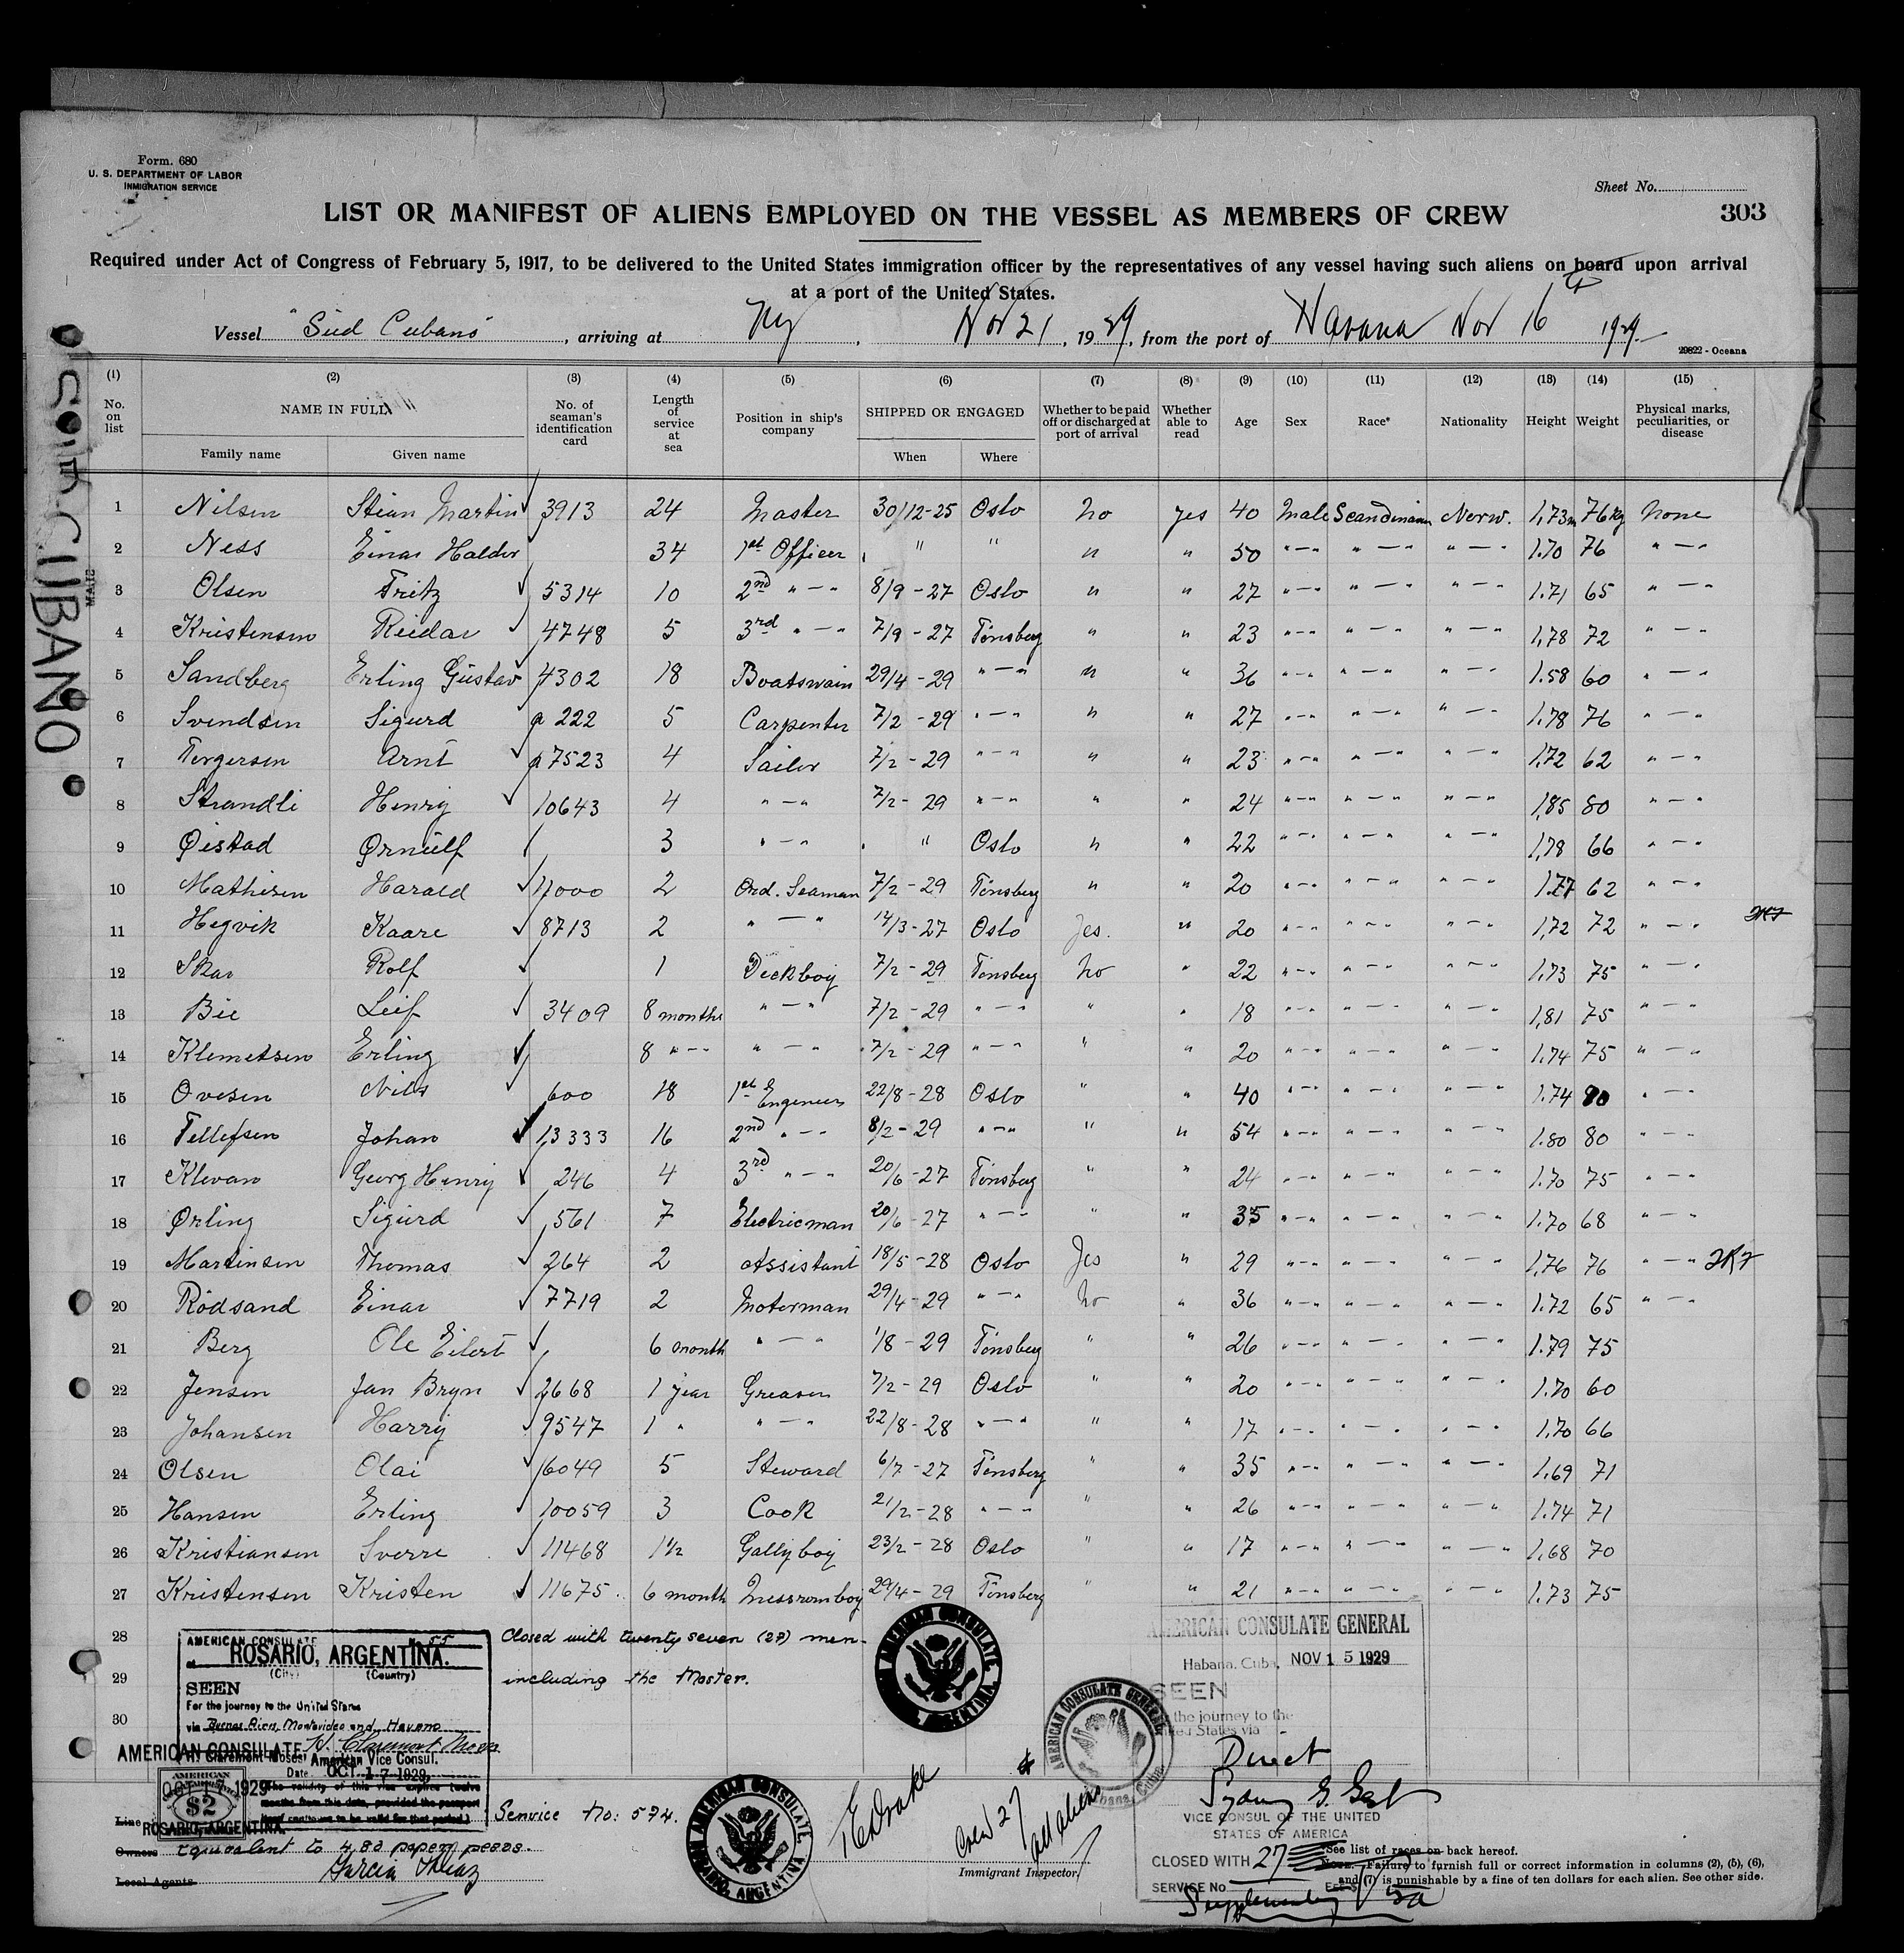 Form. 680
U. S. DEPARTMENT OF LABOR
INMIGRATION SERVICE
Sheet No.
LIST OR MANIFEST OF ALIENS EMPLOYED ON THE VESSEL AS MEMBERS OF CREW
303
Required under Act of Congress of February 5, 1917, to be delivered to the United States immigration officer by the representatives of any vessel having such aliens on board upon arrival
at a port of the United States.
Vessel "Sud Cubano", arriving at Ny, Nov 21, 1929, from the port of Havana Nov 16 1929
29822 - Oceana
(1) (2) (3) (4) (5) (6) (7) (8) (9) (10) (11) (12) (13) (14) (15)
No. on list NAME IN FULL No. of seaman's identification card Length of service at sea Position in ship's company SHIPPED OR ENGAGED Whether to be paid off or discharged at port of arrival Whether able to read Age Sex Race* Nationality Height Weight Physical marks, peculiarities, or disease
Family name Given name When Where
1 Nilsen Stian Martin 3913 24 Master 30/12-25 Oslo No yes 40 Male Scandinavian Norw. 1,73m 76kg None
2 Ness Einar Haldor 34 1st Officer " " " " 50 "-" "-" "-" 1.70 76 "-"
3 Olsen Fritz 5314 10 2nd "-" 8/9-27 Oslo " " 27 "-" "-" "-" 1.71 65 "-"
4 Kristensen Reidar 4748 5 3rd "-" 7/9-27 Tönsberg " " 23 "-" "-" "-" 1,78 72 "-"
5 Sandberg Erling Gustav 4302 18 Boatswain 29/4-29 "-" " " 36 "-" "-" "-" 1.58 60 "-"
6 Svendsen Sigurd a 222 5 Carpenter 7/2-29 "-" " " 27 "-" "-" "-" 1.78 76 "-"
7 Torgersen Arnt a 7523 4 Sailor 7/2-29 "-" " " 23 "-" "-" "-" 1.72 62 "-"
8 Strandli Henry 10643 4 "-" 7/2-29 "-" " " 24 "-" "-" "-" 1,85 80 "-"
9 Øistad Ørnulf 3 "-" " Oslo " " 22 "-" "-" "-" 1,78 66 "-"
10 Mathisen Harald 11000 2 Ord. Seaman 7/2-29 Tönsberg " " 20 "-" "-" "-" 1.77 62 "-"
11 Hegvik Kaare 8713 2 "-" 14/3-27 Oslo Yes. " 20 "-" "-" "-" 1,72 72 "-"
12 Skar Rolf 1 Deckboy 7/2-29 Tönsberg No " 22 "-" "-" "-" 1.73 75 "-"
13 Bie Leif 3409 8 months "-" 7/2-29 "-" " " 18 "-" "-" "-" 1,81 75 "-"
14 Klemetsen Erling 8 "-" "-" 7/2-29 "-" " " 20 "-" "-" "-" 1.74 75 "-"
15 Ovesen Nils 600 18 1st Engineer 22/8-28 Oslo " " 40 "-" "-" "-" 1.74 80 "-"
16 Tellefsen Johan 13333 16 2nd "-" 8/2-29 "-" " " 54 "-" "-" "-" 1.80 80 "-"
17 Klevan Georg Henry 246 4 3rd "-" 20/6-27 Tönsberg " " 24 "-" "-" "-" 1.70 75 "-"
18 Ørling Sigurd 561 7 Electricman 20/6-27 "-" " " 35 "-" "-" "-" 1.70 68 "-"
19 Martinsen Thomas 264 2 Assistant 18/5-28 Oslo Yes " 29 "-" "-" "-" 1,76 76 "-"
20 Rödsand Einar 7719 2 Moterman 29/4-29 "-" No " 36 "-" "-" "-" 1.72 65 "-"
21 Berg Ole Eilert 6 month "-" 1/8-29 Tönsberg " " 26 "-" "-" "-" 1.79 75
22 Jensen Jan Bryn 2668 1 year Greaser 7/2-29 Oslo " " 20 "-" "-" "-" 1.70 60
23 Johansen Harry 9547 1 " "-" 22/8-28 "-" " " 17 "-" "-" "-" 1,70 66
24 Olsen Olai 16049 5 Steward 6/7-27 Tönsberg " " 35 "-" "-" "-" 1,69 71
25 Hansen Erling 10059 3 Cook 21/2-28 "-" " " 26 "-" "-" "-" 1.74 71
26 Kristiansen Sverre 11468 1½ Gallyboy 23/2-28 Oslo " " 17 "-" "-" "-" 1,68 70
27 Kristensen Kristen 11675 6 month Messromboy 29/4-29 Tönsberg " " 21 "-" "-" "-" 1.73 75
28 Closed with twenty seven (27) men
29 including the Master.
30
CUBANO
AMERICAN CONSULATE
ROSARIO, ARGENTINA.
(City) (Country)
SEEN
For the journey to the United States
via Buenos Aires, Montevideo and Havana
H. Claremont Moses
American Vice Consul.
Date OCT 17 1929
AMERICAN CONSULATE
AMERICAN
$2
ROSARIO, ARGENTINA.
months from this date, provided the passport
Service No: 574.
Line
Owners
equivalent to 4.80 paper pesos.
Local Agents
AMERICAN CONSULATE
ROSARIO, ARGENTINA
AMERICAN CONSULATE, ARGENTINA
E Drake
Crew 27
all aliens
Immigrant Inspector
AMERICAN CONSULATE GENERAL
Habana, Cuba, NOV 15 1929
SEEN
the journey to the
United States via
Direct
AMERICAN CONSULATE GENERAL Habana, Cuba
VICE CONSUL OF THE UNITED
STATES OF AMERICA
CLOSED WITH 27
SERVICE No.
Supplementary
See list of races on back hereof.
Note.—Failure to furnish full or correct information in columns (2), (5), (6),
and (7) is punishable by a fine of ten dollars for each alien. See other side.